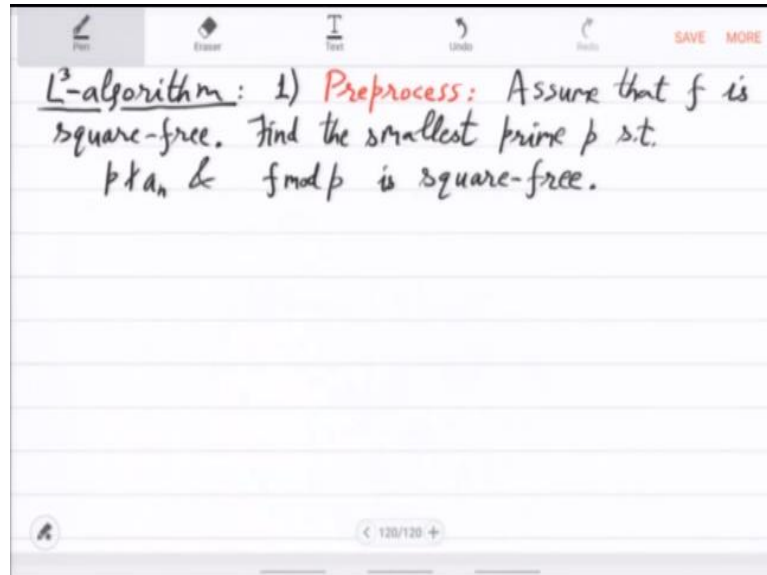 Pen Eraser Text Undo Redo SAVE MORE
L³-algorithm: 1) Preprocess: Assume that f is
square-free. Find the smallest prime p s.t.
p∤aₙ & f mod p is square-free.
< 120/120 +